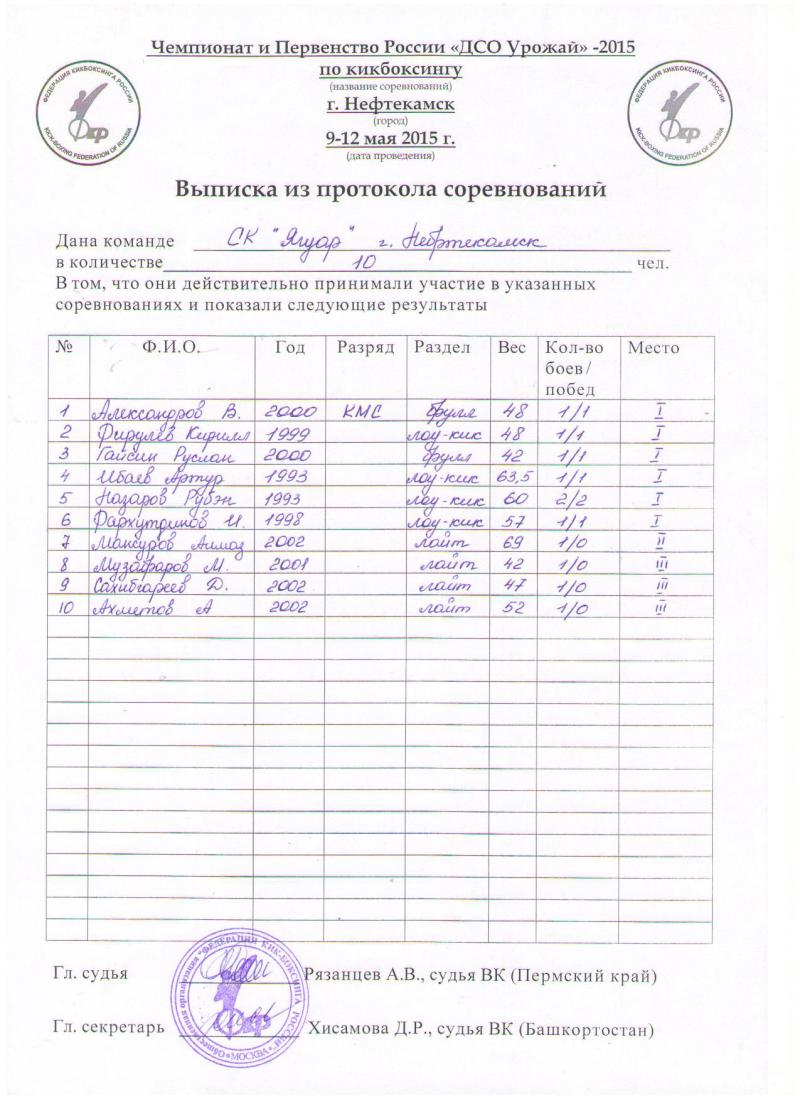 Чемпионат и Первенство России «ДСО Урожай» -2015
по кикбоксингу
(название соревнований)
г. Нефтекамск
(город)
9-12 мая 2015 г.
(дата проведения)
ФЕДЕРАЦИЯ КИКБОКСИНГА РОССИИ
ФКР
KICK-BOXING FEDERATION OF RUSSIA
ФЕДЕРАЦИЯ КИКБОКСИНГА РОССИИ
ФКР
KICK-BOXING FEDERATION OF RUSSIA
Выписка из протокола соревнований
Дана команде СК "Ягуар" г. Нефтекамск
в количестве 10 чел.
В том, что они действительно принимали участие в указанных
соревнованиях и показали следующие результаты
№ Ф.И.О. Год Разряд Раздел Вес Кол-во боев/ побед Место
1 Александров В. 2000 КМС фулл 48 1/1 I
2 Фирулёв Кирилл 1999 лоу-кик 48 1/1 I
3 Гайсин Руслан 2000 фулл 42 1/1 I
4 Ибаев Артур 1993 лоу-кик 63,5 1/1 I
5 Назаров Рубэн 1993 лоу-кик 60 2/2 I
6 Фархутдинов И. 1998 лоу-кик 57 1/1 I
7 Мансуров Алмаз 2002 лайт 69 1/0 II
8 Музафаров М. 2001 лайт 42 1/0 III
9 Сахибгареев Д. 2002 лайт 47 1/0 III
10 Ахметов А 2002 лайт 52 1/0 III
Гл. судья Рязанцев А.В., судья ВК (Пермский край)
Гл. секретарь Хисамова Д.Р., судья ВК (Башкортостан)
Общественная организация "ФЕДЕРАЦИЯ КИК-БОКСИНГА РОССИИ" МОСКВА
ФКР